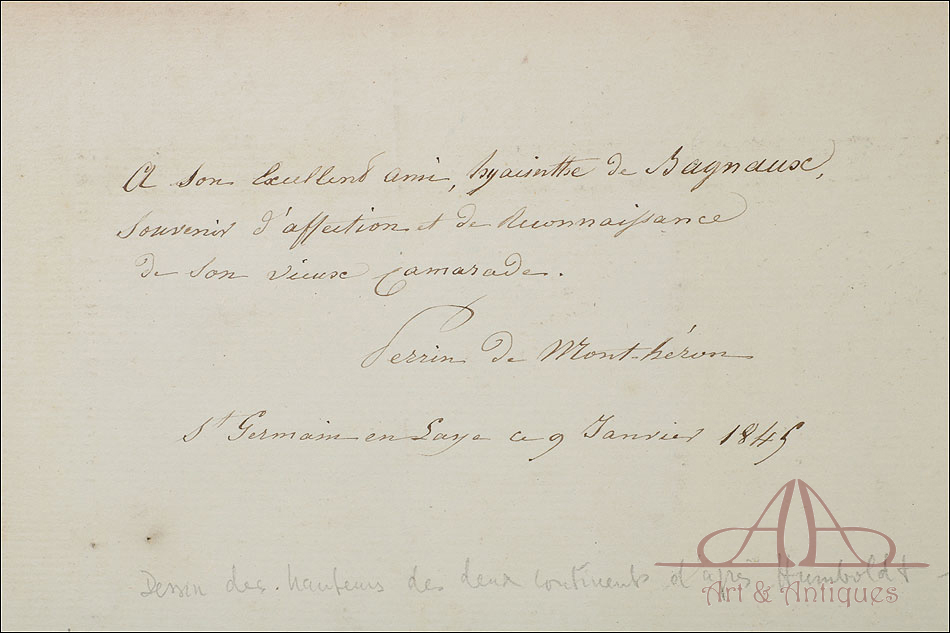 A son Excellent ami, hyacinthe de Bagnaux,
Souvenir d'affection et de Reconnaissance
de son vieux Camarade.
Perrin de Mont-héron
St Germain en Laye ce 9 Janvier 1845
Dessin des hauteurs des deux continents d'après Humboldt
Art & Antiques